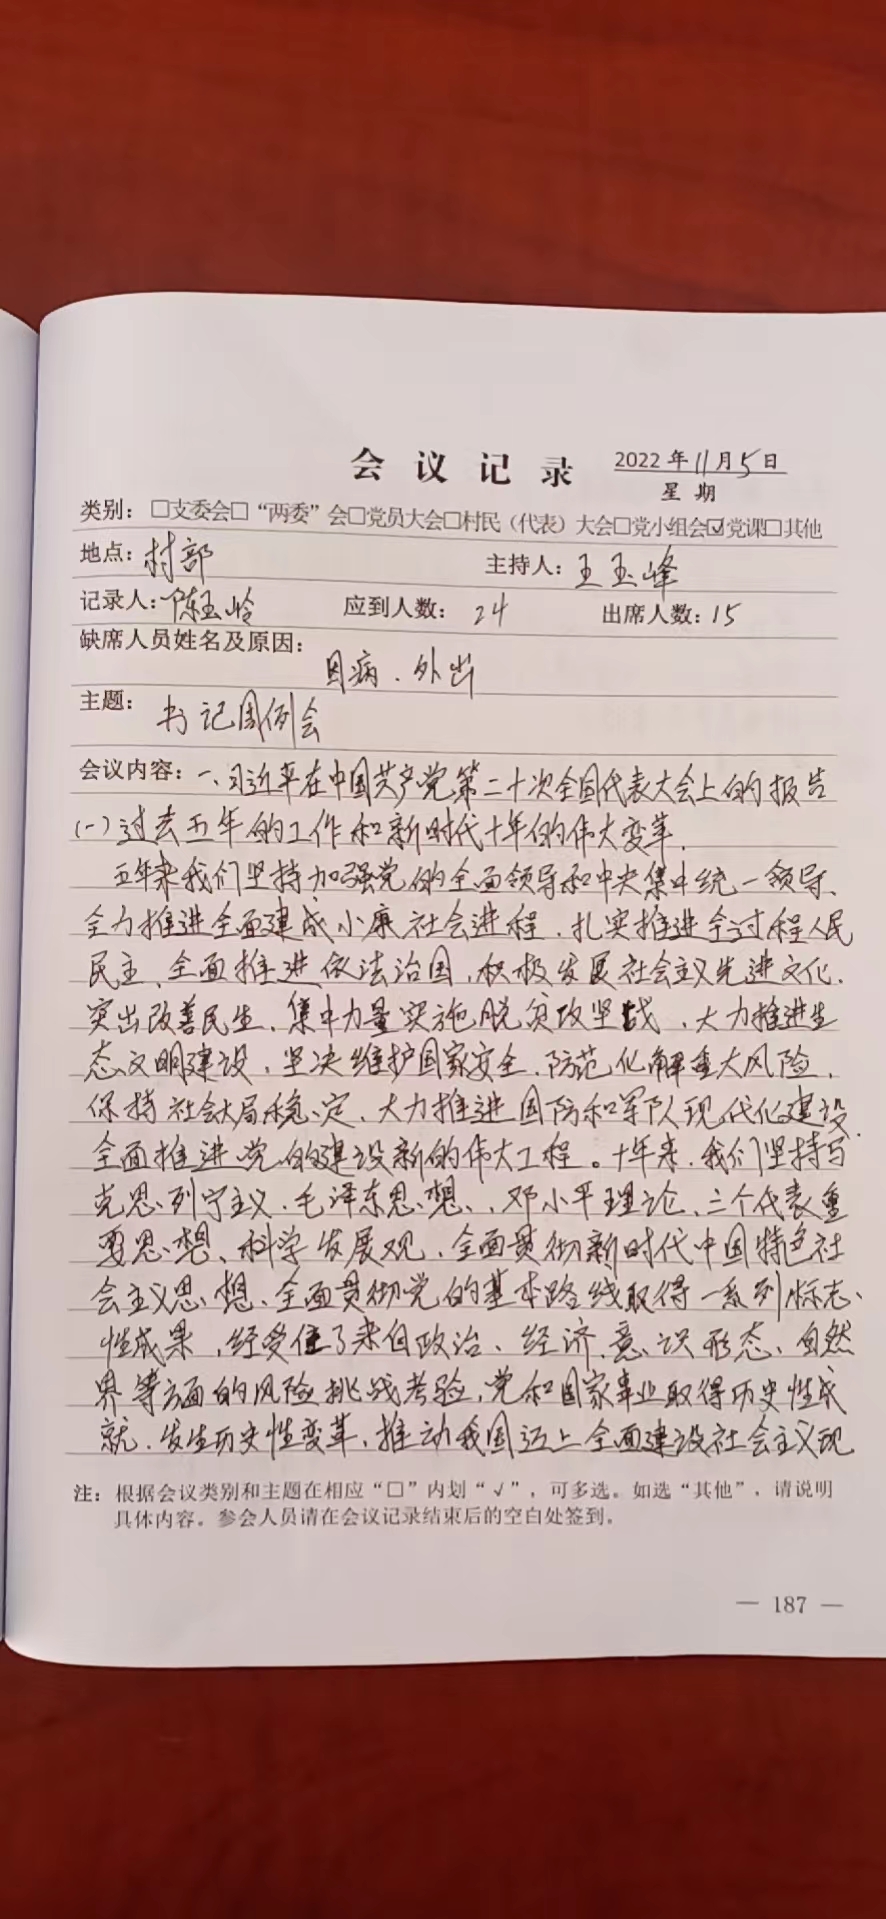 会议记录 2022年11月5日
星期
类别：□支委会□“两委”会□党员大会□村民（代表）大会□党小组会☑党课□其他
地点：村部 主持人：王玉峰
记录人：陈玉岭 应到人数：24 出席人数：15
缺席人员姓名及原因：
因病、外出
主题：书记周例会
会议内容：一、习近平在中国共产党第二十次全国代表大会上的报告
(一)过去五年的工作和新时代十年的伟大变革.
五年来我们坚持加强党的全面领导和中央集中统一领导、
全力推进全面建成小康社会进程、扎实推进全过程人民
民主、全面推进依法治国，积极发展社会主义先进文化、
突出改善民生、集中力量实施脱贫攻坚战、大力推进生
态文明建设、坚决维护国家安全、防范化解重大风险、
保持社会大局稳定、大力推进国防和军队现代化建设、
全面推进党的建设新的伟大工程。十年来、我们坚持马
克思列宁主义、毛泽东思想、、邓小平理论、三个代表重
要思想、科学发展观、全面贯彻新时代中国特色社
会主义思想、全面贯彻党的基本路线取得一系列标志、
性成果，经受住了来自政治、经济、意识形态、自然
界等方面的风险挑战考验，党和国家事业取得历史性成
就、发生历史性变革、推动我国迈上全面建设社会主义现
注：根据会议类别和主题在相应“□”内划“√”，可多选。如选“其他”，请说明
具体内容。参会人员请在会议记录结束后的空白处签到。
— 187 —